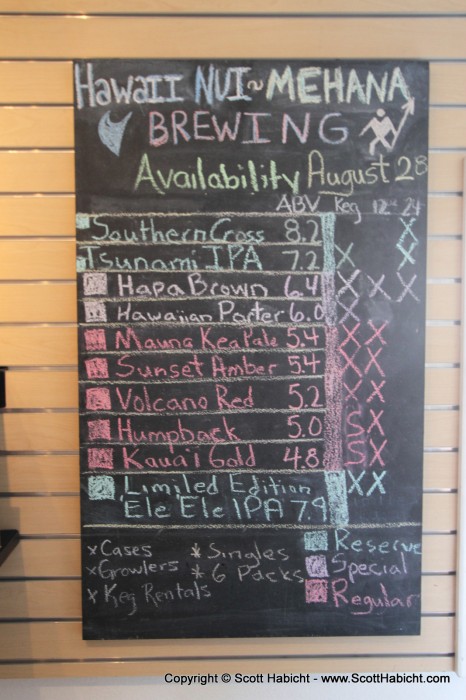 Hawaii Nui ~ Mehana
Brewing
Availability August 28
ABV Keg 12oz 24
Southern Cross 8.2 X
Tsunami IPA 7.2 X X
Hapa Brown 6.4 X X X
Hawaiian Porter 6.0 X
Mauna Kea Pale 5.4 X X
Sunset Amber 5.4 X X
Volcano Red 5.2 X X
Humpback 5.0 S X
Kaua'i Gold 4.8 S X
Limited Edition X X
'Ele 'Ele IPA 7.9
x Cases * Singles Reserve
x Growlers * 6 Packs Special
x Keg Rentals Regular
Copyright © Scott Habicht - www.ScottHabicht.com